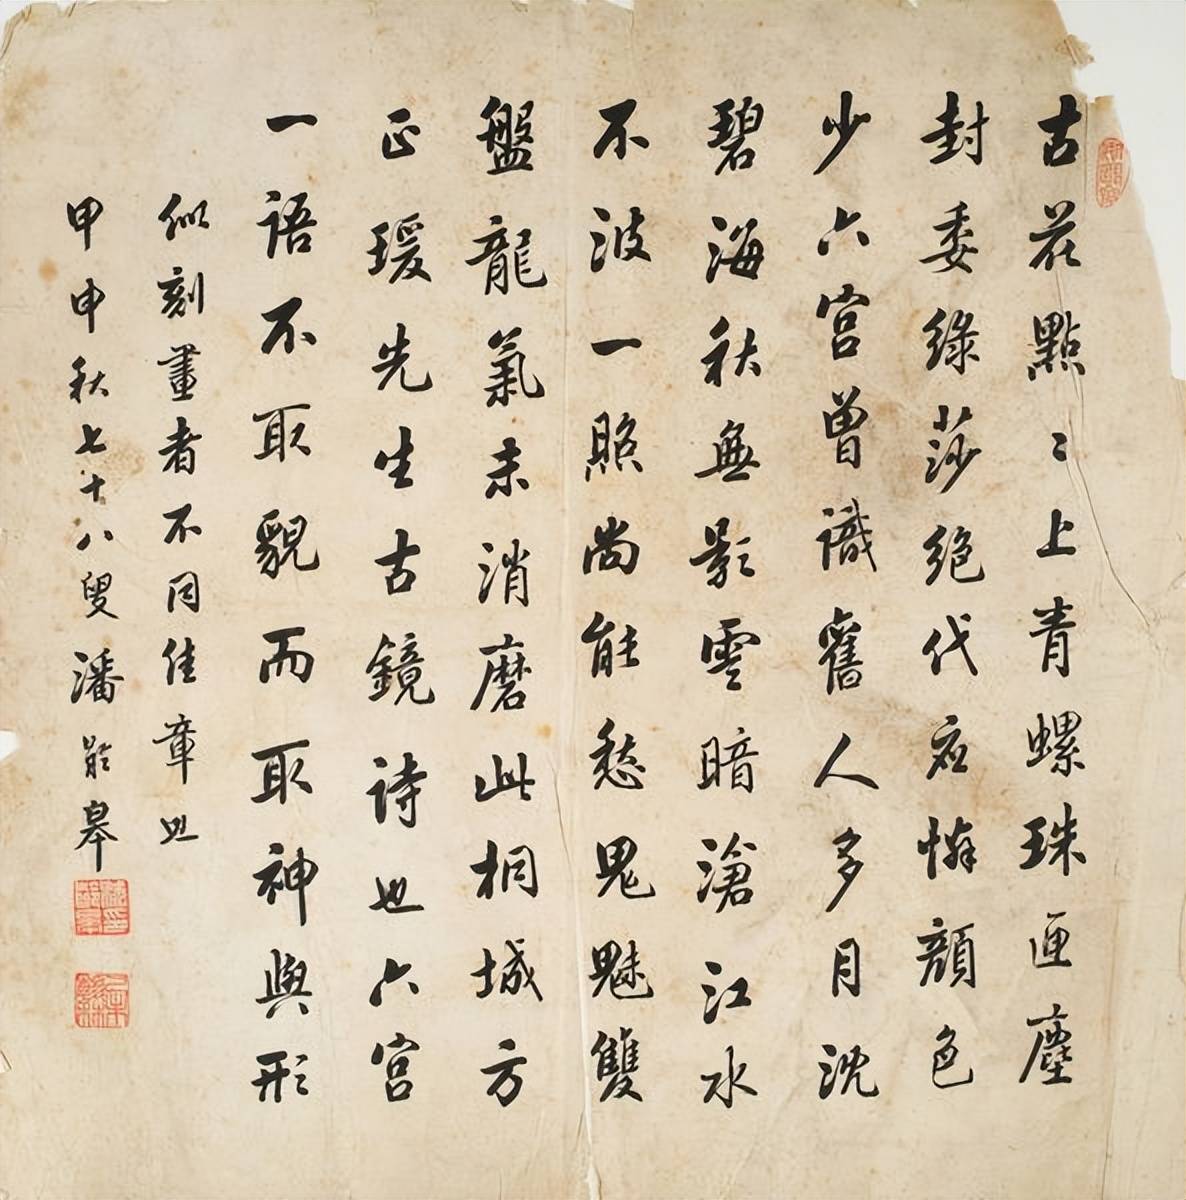 古花點〻上青螺珠匣塵
封委綠莎絕代應憐顏色
少六宮曾識舊人多月沈
碧海秋無影雲暗滄江水
不波一照尚能愁鬼魅雙
盤龍氣未消磨此桐城方
正瑗先生古鏡詩也六宮
一語不取貌而取神與形
似刻畫者不同佳章也
甲申秋七十八叟潘齡皋